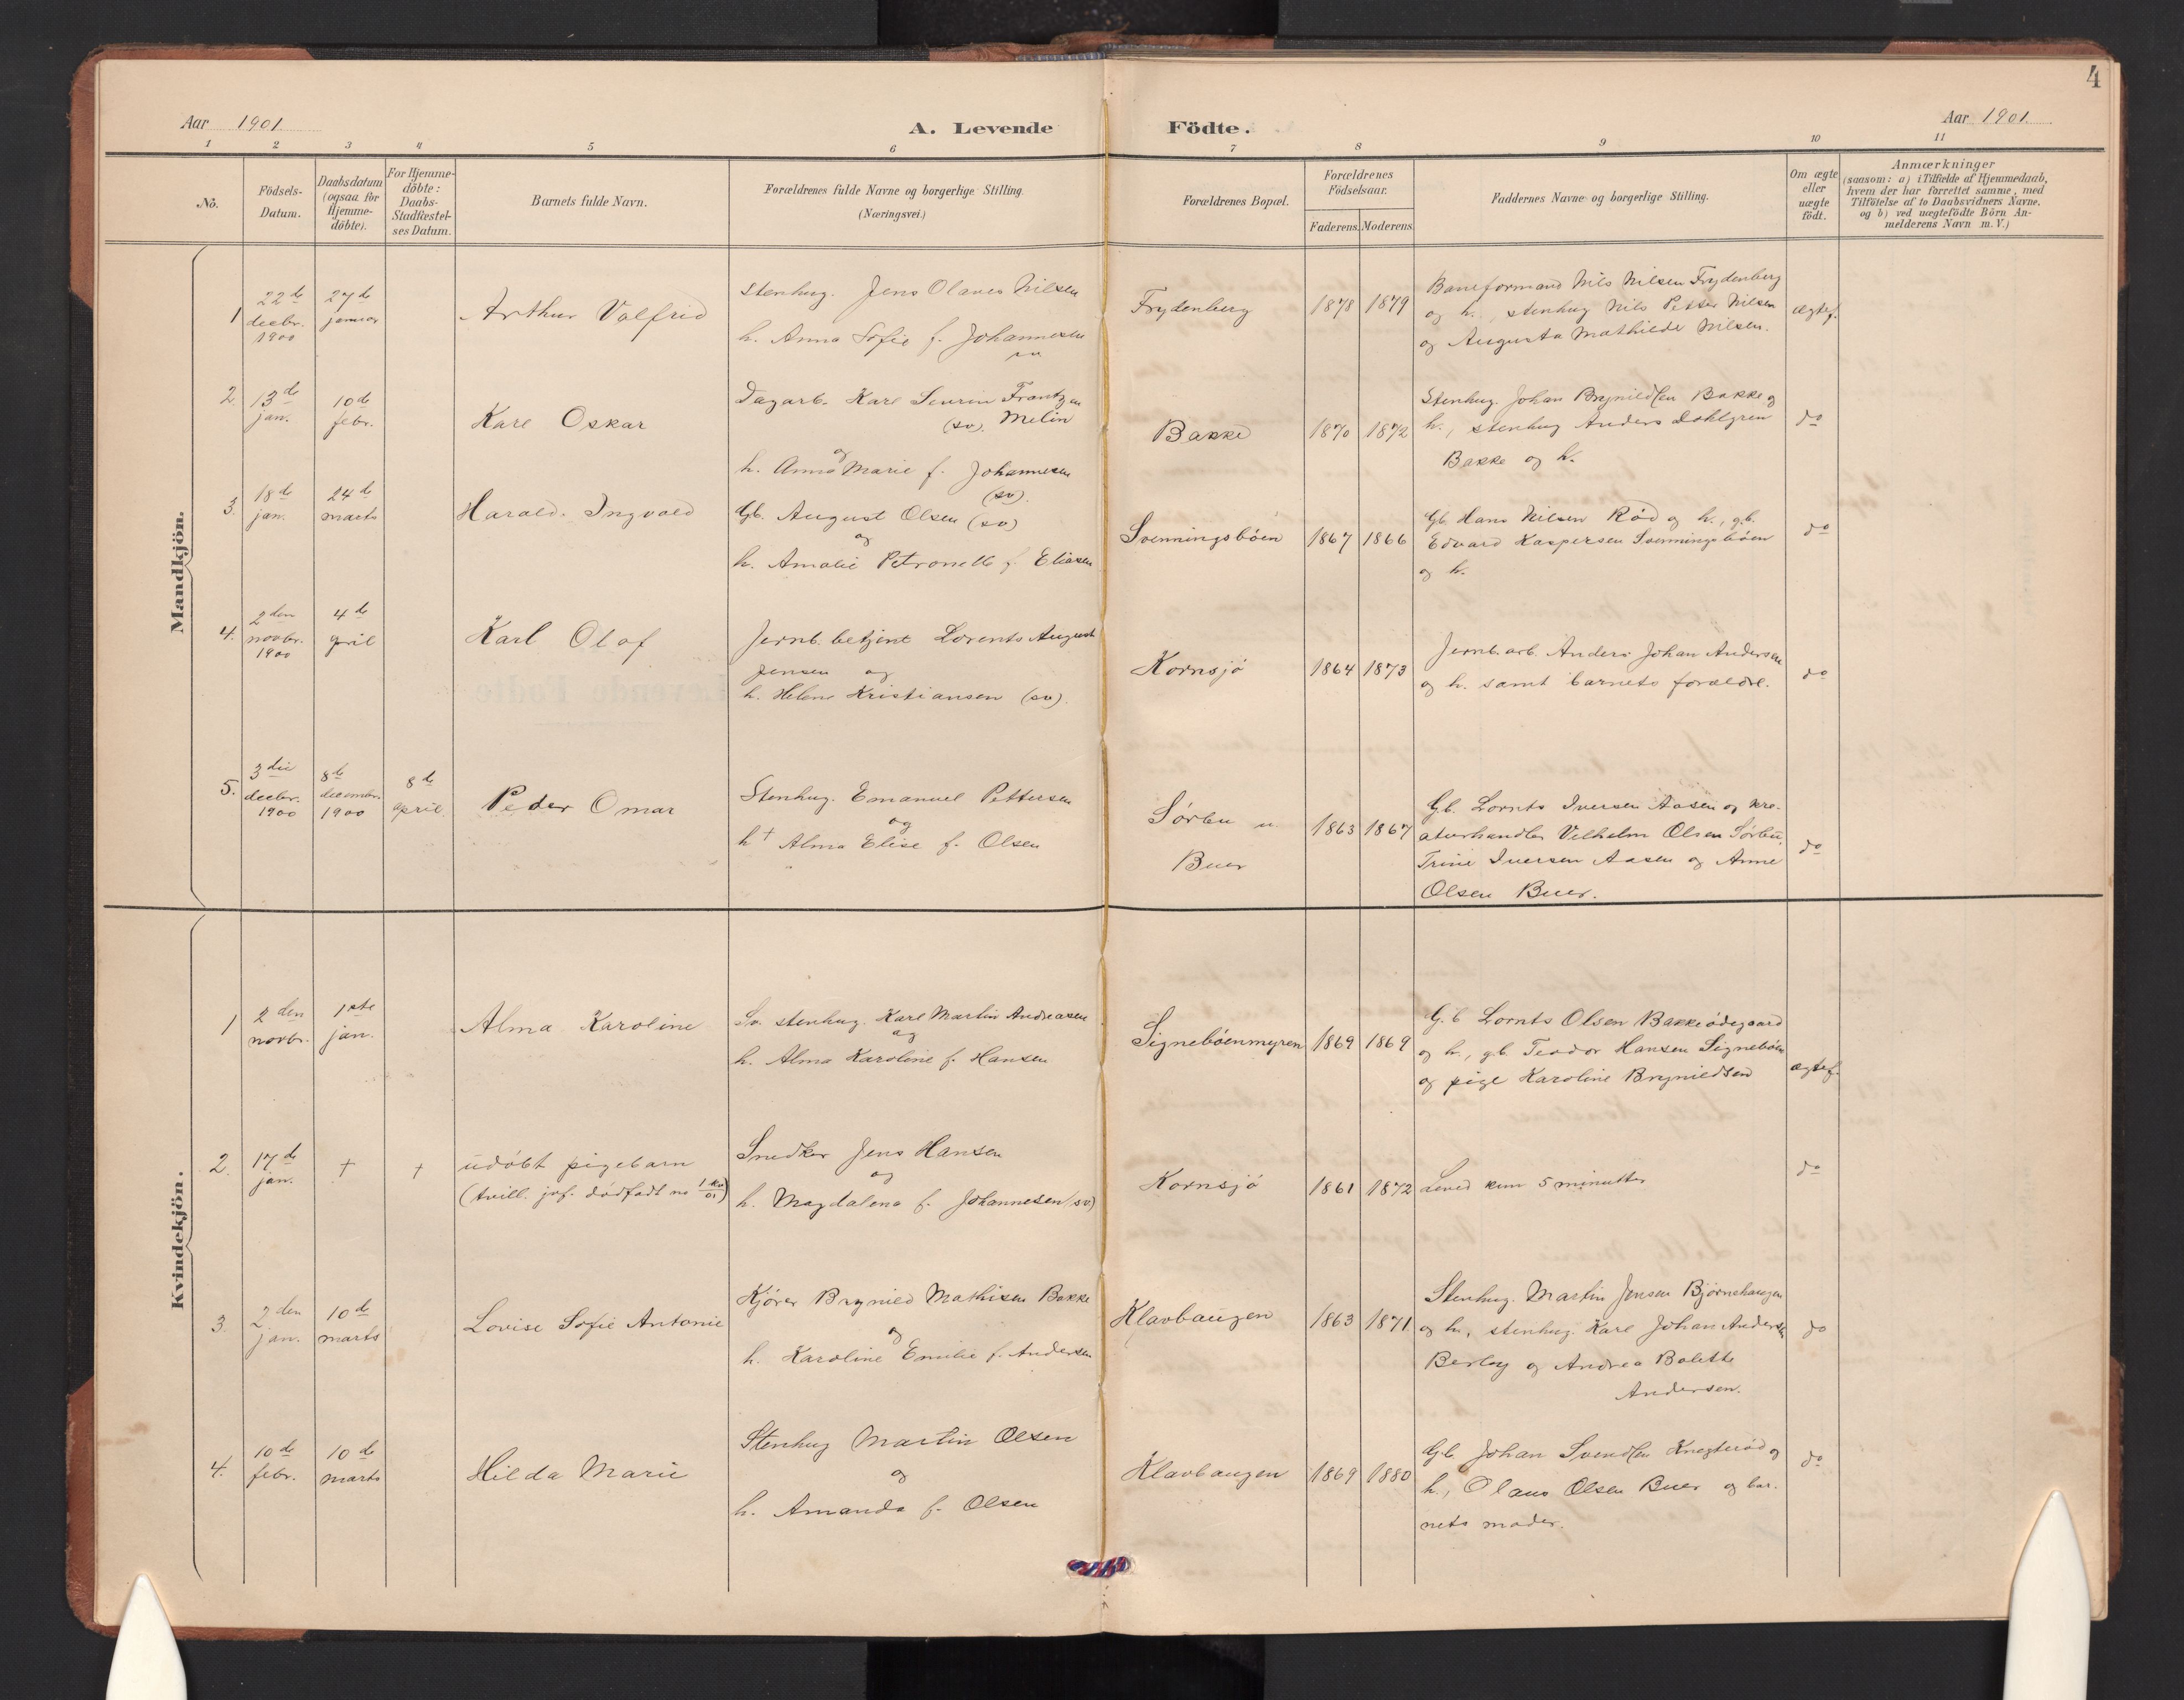 4
Aar 1901.
A. Levende Födte.
Aar 1901.
1 2 3 4 5 6 7 8 9 10 11
No.
Födsels-
Datum.
Daabsdatum
(ogsaa for
Hjemme-
döbte).
For Hjemme-
döbte:
Daabs-
Stadfæstel-
ses Datum.
Barnets fulde Navn.
Forældrenes fulde Navne og borgerlige Stilling.
(Næringsvei.)
Forældrenes Bopæl.
Forældrenes
Födselsaar.
Faderens. Moderens.
Faddernes Navne og borgerlige Stilling.
Om ægte
eller
uægte
födt.
Anmærkninger
(saasom: a) i Tilfælde af Hjemmedaab,
hvem der har forrettet samme, med
Tilföielse af to Daabsvidners Navne.
og b) ved uægtefödte Börn An-
melderens Navn m. V.)
Mandkjön.
1
22de
decbr.
1900
27de
januar
Arthur Valfrid
Stenhug. Jens Olaves Nilsen
h. Anna Sofie f. Johannesen
sv
Frydenberg
1878 1879
Baneformand Nils Nilsen Frydenberg
og h., stenhug Nils Petter Nilsen
og Augusta Mathilde Nilsen.
ægtef.
2.
13de
jan.
10de
febr.
Karl Oskar
Dagarb. Karl Sevrin Frantzen
(sv). Melin
og
h. Anna Marie f. Johannesen
(sv).
Bakke
1870 1872
Stenhug. Johan Brynildsen Bakke og
h., stenhug Anders Dahlgren
Bakke og h.
do
3.
18de
jan.
24de
marts
Harald Ingvald
Gb. August Olsen (sv)
og
h. Amalie Petronelle f. Eliasen
Svenningsbøen
1867 1866
Gb. Hans Nilsen Rød og h., g.b.
Edvard Kaspersen Svenningsbøen
og h.
do
4.
2den
novbr.
1900
4de
april
Karl Olaf
Jernb. betjent Lorents August
Jensen og
h. Helene Kristiansen (sv).
Kornsjø
1864 1873
Jernb. arb. Anders Johan Andersen
og h. samt barnets forældre.
do
5.
3die
decbr.
1900
8de
decembr.
1900
8de
april
Peder Omar
Stenhug. Emanuel Pettersen
og
h † Alma Elise f. Olsen
Sørbu u.
Buer
1863 1867
Gb. Lornts Iversen Aasen og kre-
aturhandler Vilhelm Olsen Sørbu,
Trine Iversen Aasen og Anne
Olsen Buer.
do
Kvindekjön.
1
2den
novbr.
1ste
jan.
Alma Karoline
Sv. stenhug. Karl Martin Andreasen
og
h. Alma Karoline f. Hansen
Signebøenmyren
1869 1869
G.b Lornts Olsen Bakkeødegaard
og h., gb. Teodor Hansen Signebøen
og pige Karoline Brynildsen
ægtef.
2.
17de
jan.
†
†
udøbt pigebarn
(tvill. jvf. dødfødt no
Snedker Jens Hansen
og
h. Magdalena f. Johannesen (sv)
Kornsjø
1861 1872
Leved kun 5 minutter
do
3.
2den
jan.
10de
marts
Lovise Sofie Antonie
Kjører Brynild Mathisen Bakke
og
h. Karoline Emilie f. Andersen
Klavhaugen
1863 1871
Stenhug. Martin Jensen Bjørnehaugen
og h., stenhug. Karl Johan Andersen
Berby og Andrea Bolette
Andersen.
do
4.
10de
febr.
10de
marts
Hilda Marie
Stenhug Martin Olsen
og
h. Amanda f. Olsen
Klavhaugen
1869 1880
Gb. Johan Svendsen Knegterød og
h., Olaus Olsen Buer og bar-
nets moder.
do